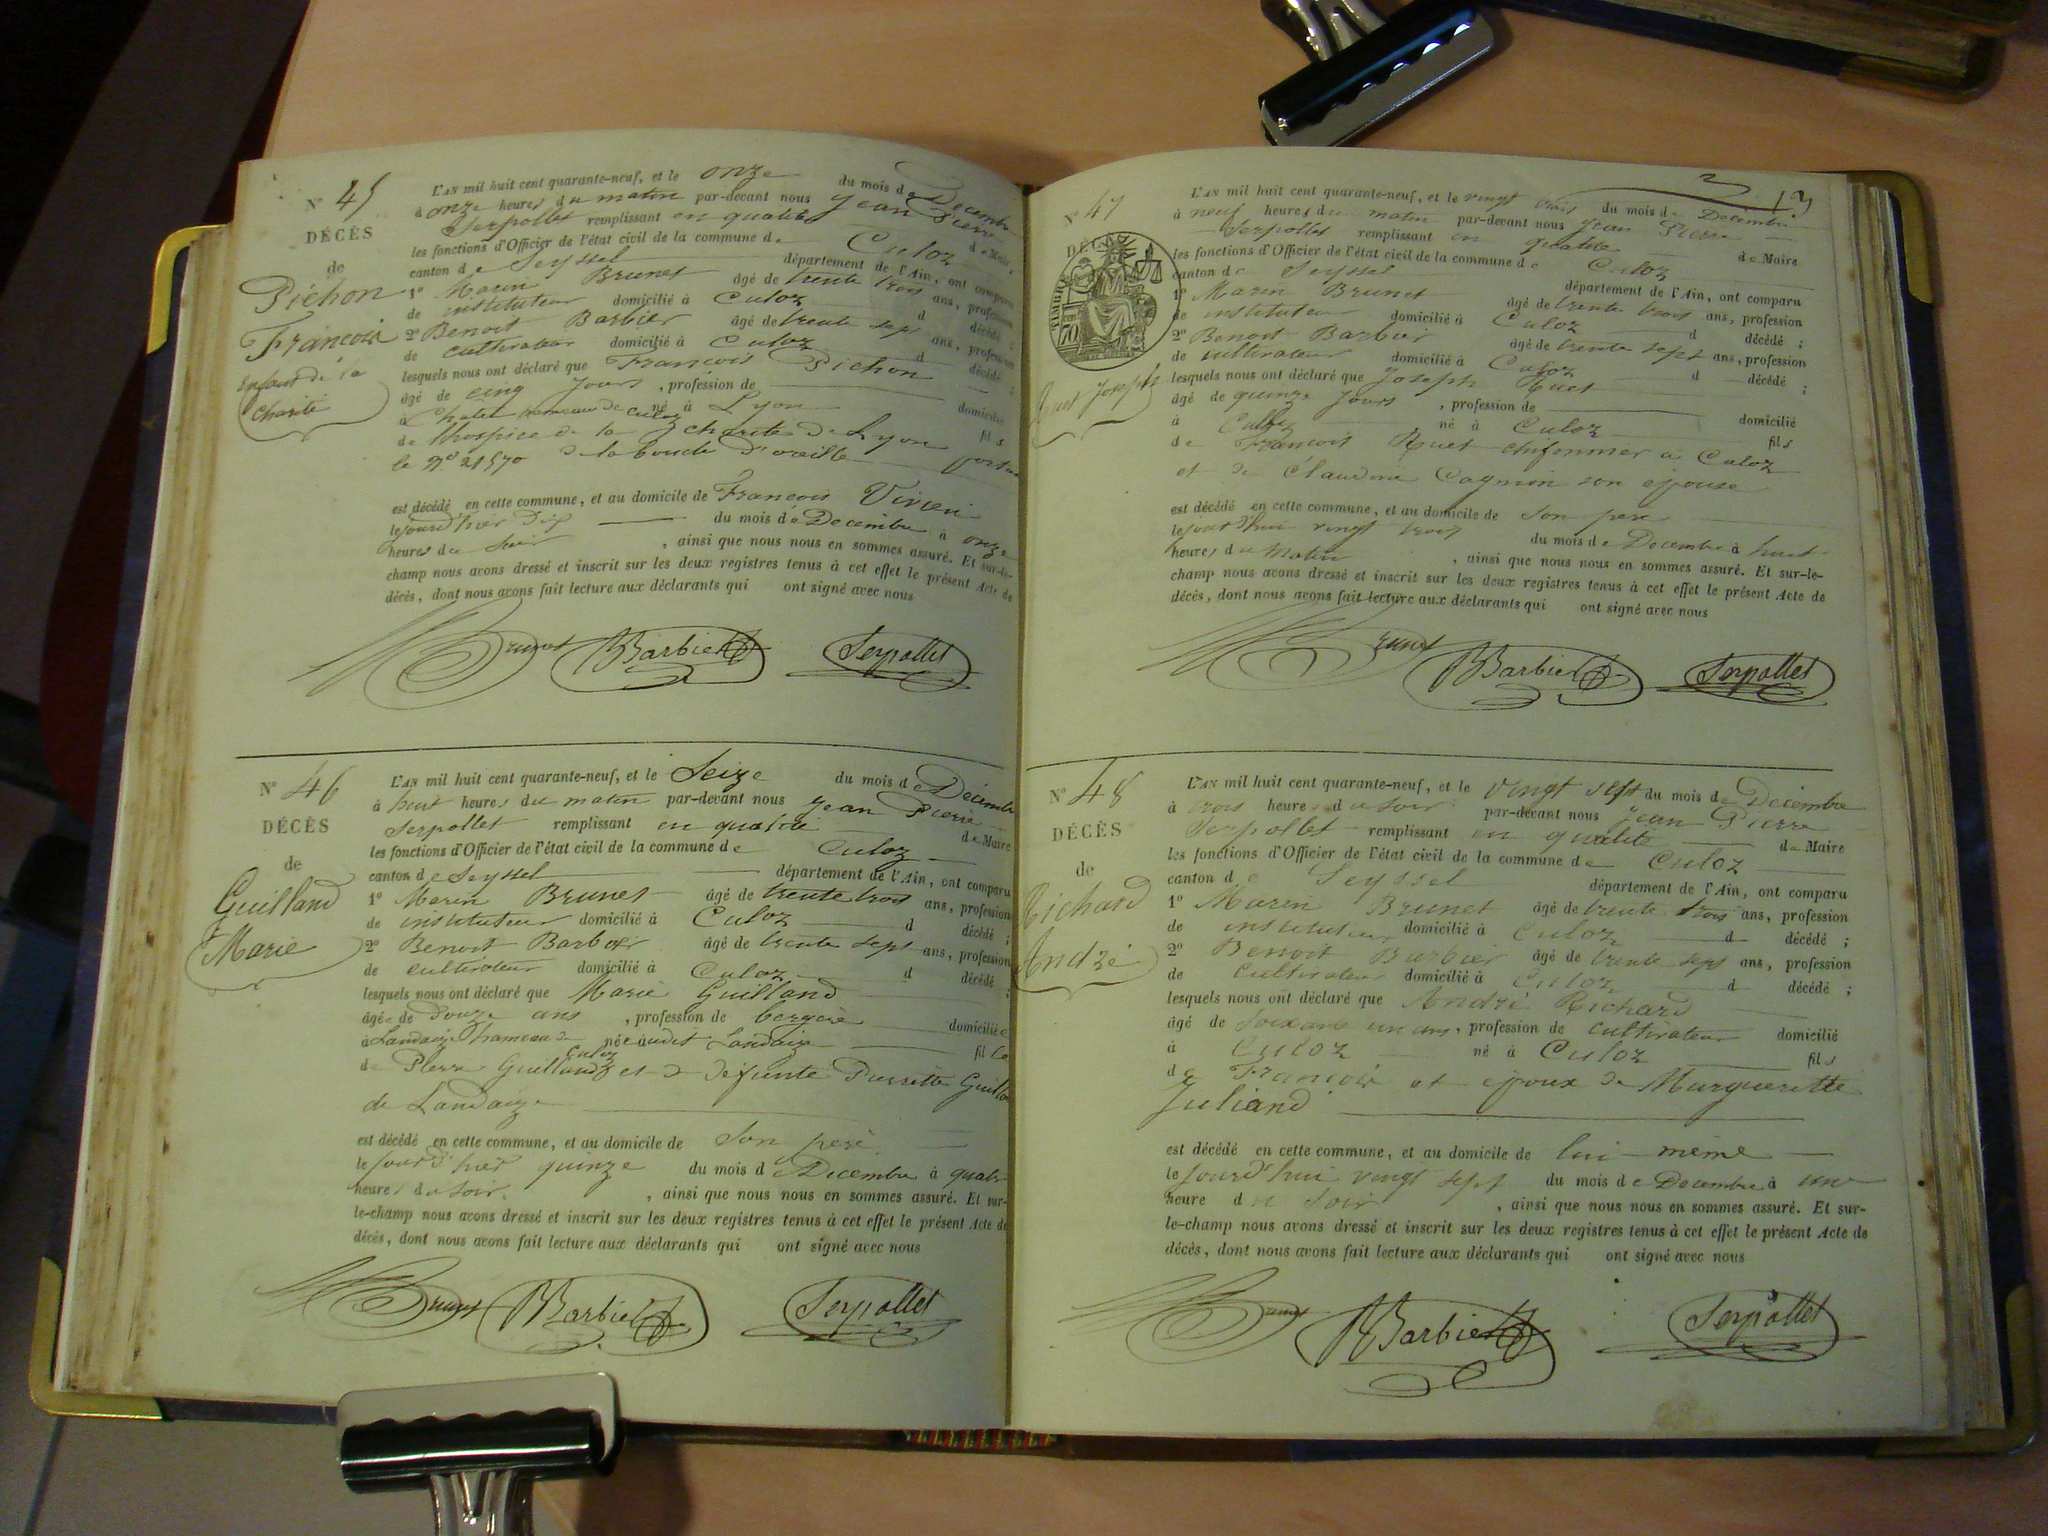 N° 45
DÉCÈS
de
Pichon
François
Enfant de la
Charité
L'AN mil huit cent quarante-neuf, et le onze du mois de Décembre
à onze heures du matin par-devant nous Jean Pierre
Serpollet remplissant en qualité de Maire
les fonctions d'Officier de l'état civil de la commune de Culoz
canton de Seyssel département de l'Ain, ont comparu
1° Marin Brunet âgé de trente trois ans, profession
de instituteur domicilié à Culoz d décédé ;
2° Benoit Barbier âgé de trente sept ans, profession
de cultivateur domicilié à Culoz d décédé ;
lesquels nous ont déclaré que François Pichon
âgé de cinq jours , profession de domicilié
à Chatel hameau de Culoz né à Lyon fils
de l'hospice de la charité de Lyon portant
le n° 21570 de la boucle d'oreille
est décédé en cette commune, et au domicile de François Vivien
le jourd'hier dix du mois de Decembre à onze
heures du soir , ainsi que nous nous en sommes assuré. Et sur-le-
champ nous avons dressé et inscrit sur les deux registres tenus à cet effet le présent Acte de
décès, dont nous avons fait lecture aux déclarants qui ont signé avec nous
Brunet BBarbier Serpollet
N° 46
DÉCÈS
de
Guilland
Marie
L'AN mil huit cent quarante-neuf, et le Seize du mois de Décembre
à huit heures du matin par-devant nous Jean Pierre
Serpollet remplissant en qualité de Maire
les fonctions d'Officier de l'état civil de la commune de Culoz
canton de Seyssel département de l'Ain, ont comparu
1° Marin Brunet âgé de trente trois ans, profession
de instituteur domicilié à Culoz d décédé ;
2° Benoit Barbier âgé de trente sept ans, profession
de cultivateur domicilié à Culoz d décédé ;
lesquels nous ont déclaré que Marie Guilland
âgée de douze ans , profession de bergère domiciliée
à Landaize hameau de Culoz née audit Landaize fille
de Pierre Guilland et de défunte Pierrette Guilland
de Landaize
est décédé en cette commune, et au domicile de son père
le jourd'hier quinze du mois de Décembre à quatre
heures du soir , ainsi que nous nous en sommes assuré. Et sur-
le-champ nous avons dressé et inscrit sur les deux registres tenus à cet effet le présent Acte de
décès, dont nous avons fait lecture aux déclarants qui ont signé avec nous
Brunet BBarbier Serpollet
13
N° 47
DÉCÈS
TIMBRE
70
Ruet Joseph
L'AN mil huit cent quarante-neuf, et le vingt trois du mois de Decembre
à neuf heures du matin par-devant nous Jean Pierre
Serpollet remplissant en qualité de Maire
les fonctions d'Officier de l'état civil de la commune de Culoz
canton de Seyssel département de l'Ain, ont comparu
1° Marin Brunet âgé de trente trois ans, profession
de instituteur domicilié à Culoz d décédé ;
2° Benoit Barbier âgé de trente sept ans, profession
de cultivateur domicilié à Culoz d décédé ;
lesquels nous ont déclaré que Joseph Ruet
âgé de quinze jours , profession de domicilié
à Culoz né à Culoz fils
de François Ruet chifonnier à Culoz
et de Claudine Cagnin son épouse
est décédé en cette commune, et au domicile de son pere
le jourd'hui vingt trois du mois de Decembre à huit
heures du matin , ainsi que nous nous en sommes assuré. Et sur-le-
champ nous avons dressé et inscrit sur les deux registres tenus à cet effet le présent Acte de
décès, dont nous avons fait lecture aux déclarants qui ont signé avec nous
Brunet BBarbier Serpollet
N° 48
DÉCÈS
de
Richard
André
L'AN mil huit cent quarante-neuf, et le vingt sept du mois de Décembre
à trois heures du soir par-devant nous Jean Pierre
Serpollet remplissant en qualité de Maire
les fonctions d'Officier de l'état civil de la commune de Culoz
canton de Seyssel département de l'Ain, ont comparu
1° Marin Brunet âgé de trente trois ans, profession
de instituteur domicilié à Culoz d décédé ;
2° Benoit Barbier âgé de trente sept ans, profession
de cultivateur domicilié à Culoz d décédé ;
lesquels nous ont déclaré que André Richard
âgé de soixante un ans, profession de cultivateur domicilié
à Culoz né à Culoz fils
de François et époux de Margueritte
Juliand
est décédé en cette commune, et au domicile de lui-même
le jourd'hui vingt sept du mois de Decembre à une
heure du soir , ainsi que nous nous en sommes assuré. Et sur-
le-champ nous avons dressé et inscrit sur les deux registres tenus à cet effet le présent Acte de
décès, dont nous avons fait lecture aux déclarants qui ont signé avec nous
Brunet BBarbier Serpollet